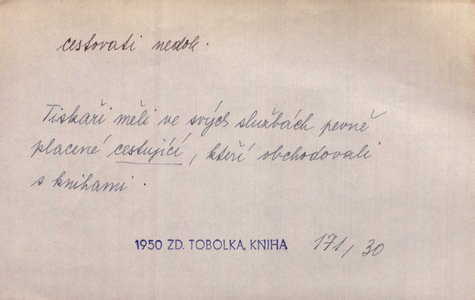 cestovati nedok.
Tiskaři měli ve svých službách pevně
placené cestující, kteří obchodovali
s knihami.
1950 ZD. TOBOLKA, KNIHA 171/30